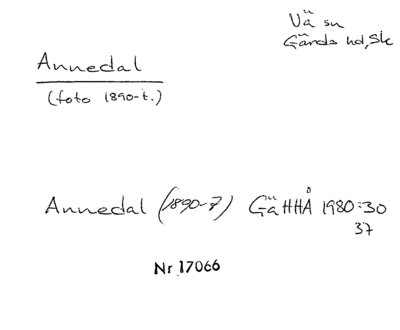 Vä sn
Gärds hd, Sk
Annedal
(foto 1890-t.)
Annedal (1890-?) GäHHÅ 1980:30
37
Nr 17066